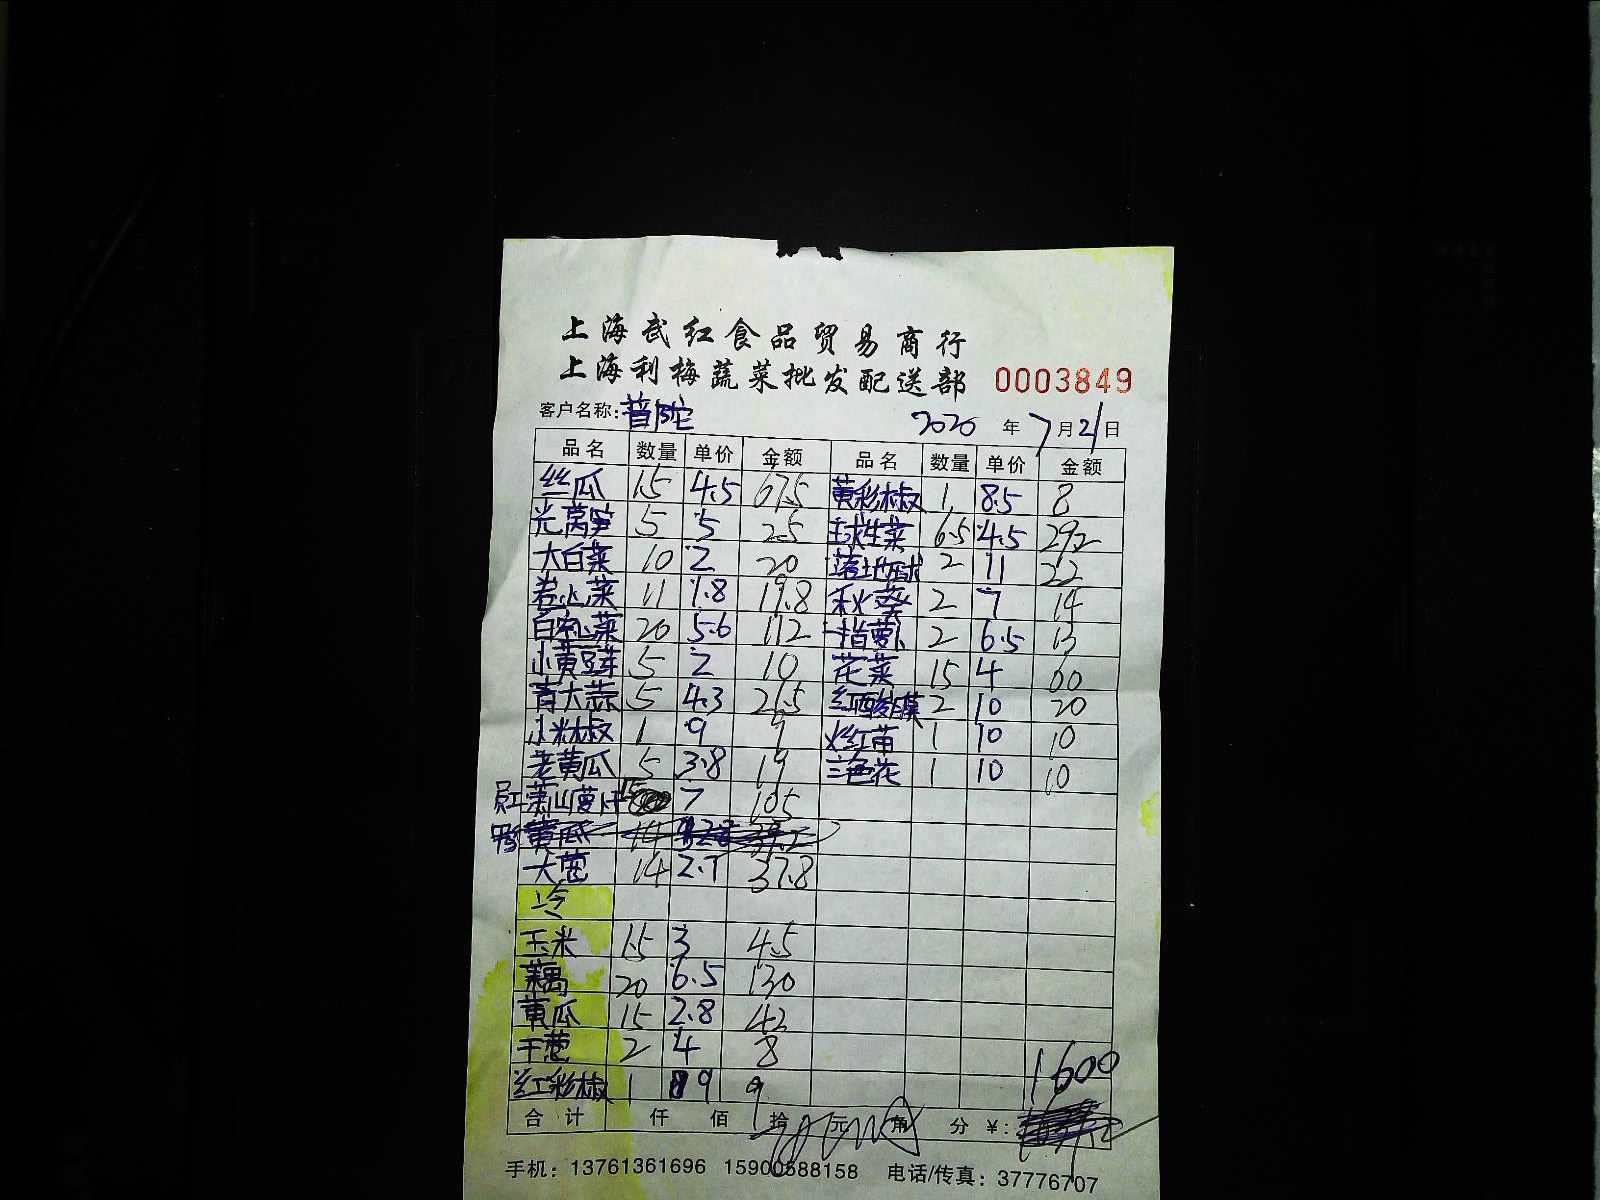 上海武红食品贸易商行
上海利梅蔬菜批发配送部 0003849
客户名称：普陀 2020年7月21日
品名 数量 单价 金额 品名 数量 单价 金额
丝瓜 15 4.5 67.5 黄彩椒 1 8.5 8
光莴笋 5 5 25 球生菜 6.5 4.5 292
大白菜 10 2 20 2 11 22
卷心菜 11 1.8 19.8 秋葵 2 7 14
20 5.6 112 指萝卜 2 6.5 13
小黄豆芽 5 2 10 花菜 15 4 60
青大蒜 5 4.3 21.5 红酸膜 2 10 20
小米椒 1 9 9 火红苗 1 10 10
老黄瓜 5 3.8 19 三色花 1 10 10
萧山萝卜干 15 7 105
黄瓜 14
大葱 14 2.7 37.8
冷
玉米 15 3 45
藕 20 6.5 130
黄瓜 15 2.8 42
干葱 2 4 8
红彩椒 1 9 9
1600
合计 仟 佰 拾 元 角 分 ¥：
手机：13761361696 15900588158 电话/传真：37776707